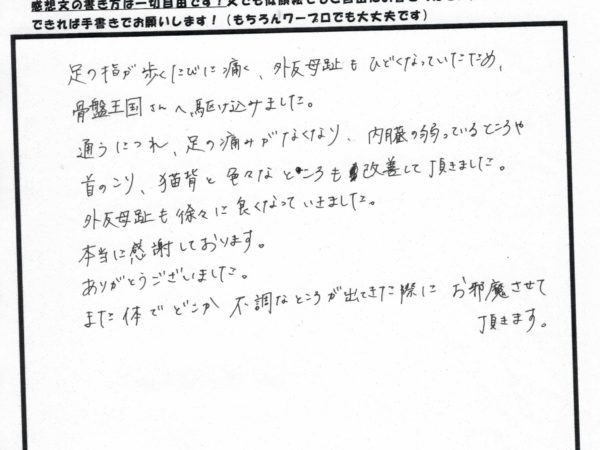 感想文の書き方は一切自由です！文でも似顔絵でもご自由にお書きください
できれば手書きでお願いします！（もちろんワープロでも大丈夫です）
足の指が歩くたびに痛く、外反母趾もひどくなっていたため、
骨盤王国さんへ駆け込みました。
通うにつれ、足の痛みがなくなり、内臓の弱っているところや
首のこり、猫背と色々なところも改善して頂きました。
外反母趾も徐々に良くなっていきました。
本当に感謝しております。
ありがとうございました。
また体でどこか不調なところが出てきた際にお邪魔させて
頂きます。